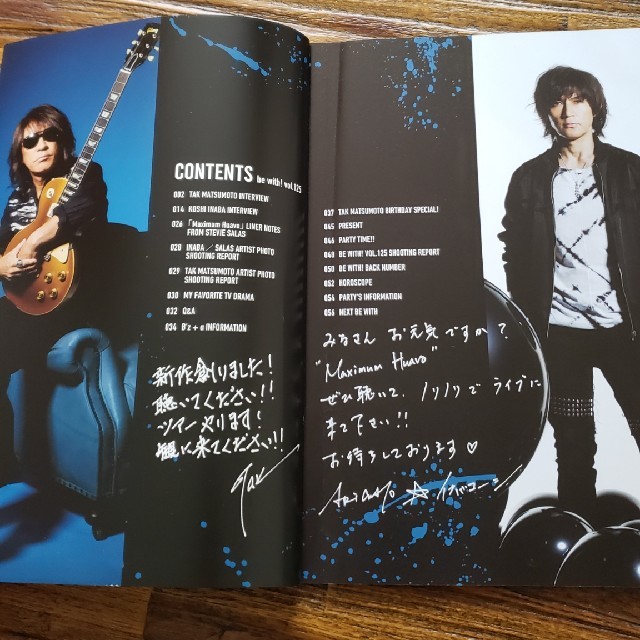 CONTENTS be with! vol.125
002 TAK MATSUMOTO INTERVIEW
014 KOSHI INABA INTERVIEW
026 「Maximum Huavo」LINER NOTES
FROM STEVIE SALAS
028 INABA / SALAS ARTIST PHOTO
SHOOTING REPORT
029 TAK MATSUMOTO ARTIST PHOTO
SHOOTING REPORT
030 MY FAVORITE TV DRAMA
032 Q&A
034 B'z + α INFORMATION
新作創りました!
聴いてください!!
ツアーやります!
観に来てください!!
Tak
037 TAK MATSUMOTO BIRTHDAY SPECIAL!
045 PRESENT
046 PARTY TIME!!
048 BE WITH! VOL.125 SHOOTING REPORT
050 BE WITH! BACK NUMBER
052 HOROSCOPE
054 PARTY'S INFORMATION
056 NEXT BE WITH
みなさん お元気ですか?
"Maximum Huavo"
ぜひ聴いて、ノリノリで ライブに
来て下さい!!
お待ちしております♡